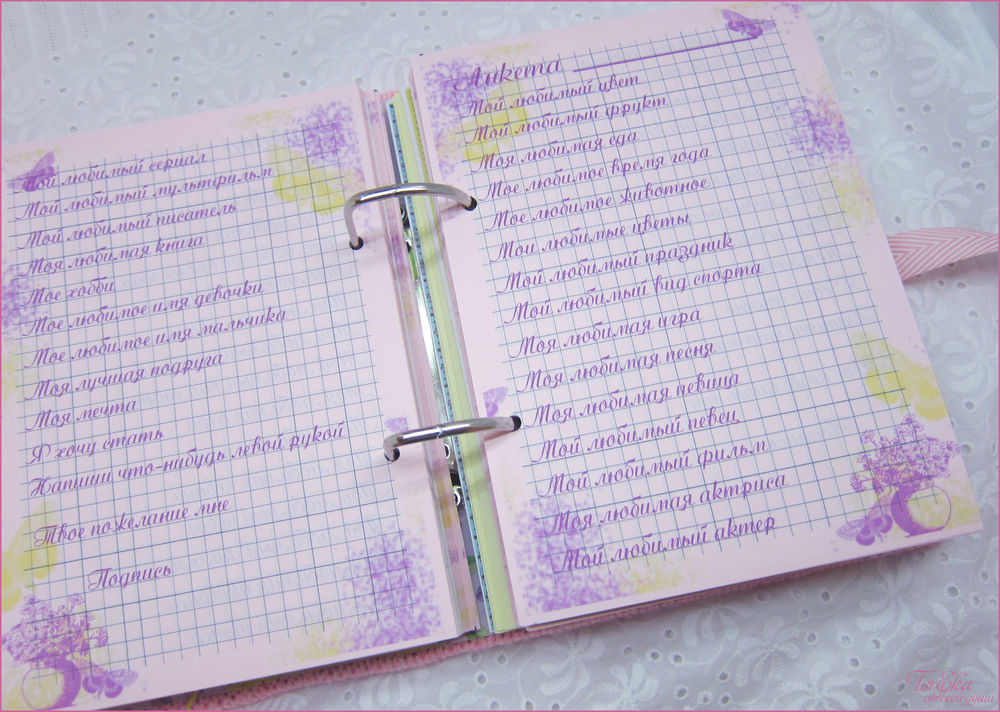 Мой любимый сериал
Мой любимый мультфильм
Мой любимый писатель
Моя любимая книга
Мое хобби
Мое любимое имя девочки
Мое любимое имя мальчика
Моя лучшая подруга
Моя мечта
Я хочу стать
Напиши что-нибудь левой рукой
Твое пожелание мне
Подпись
Анкета
Мой любимый цвет
Мой любимый фрукт
Моя любимая еда
Мое любимое время года
Мое любимое животное
Мои любимые цветы
Мой любимый праздник
Мой любимый вид спорта
Моя любимая игра
Моя любимая песня
Моя любимая певица
Мой любимый певец
Мой любимый фильм
Моя любимая актриса
Мой любимый актер
от всей души